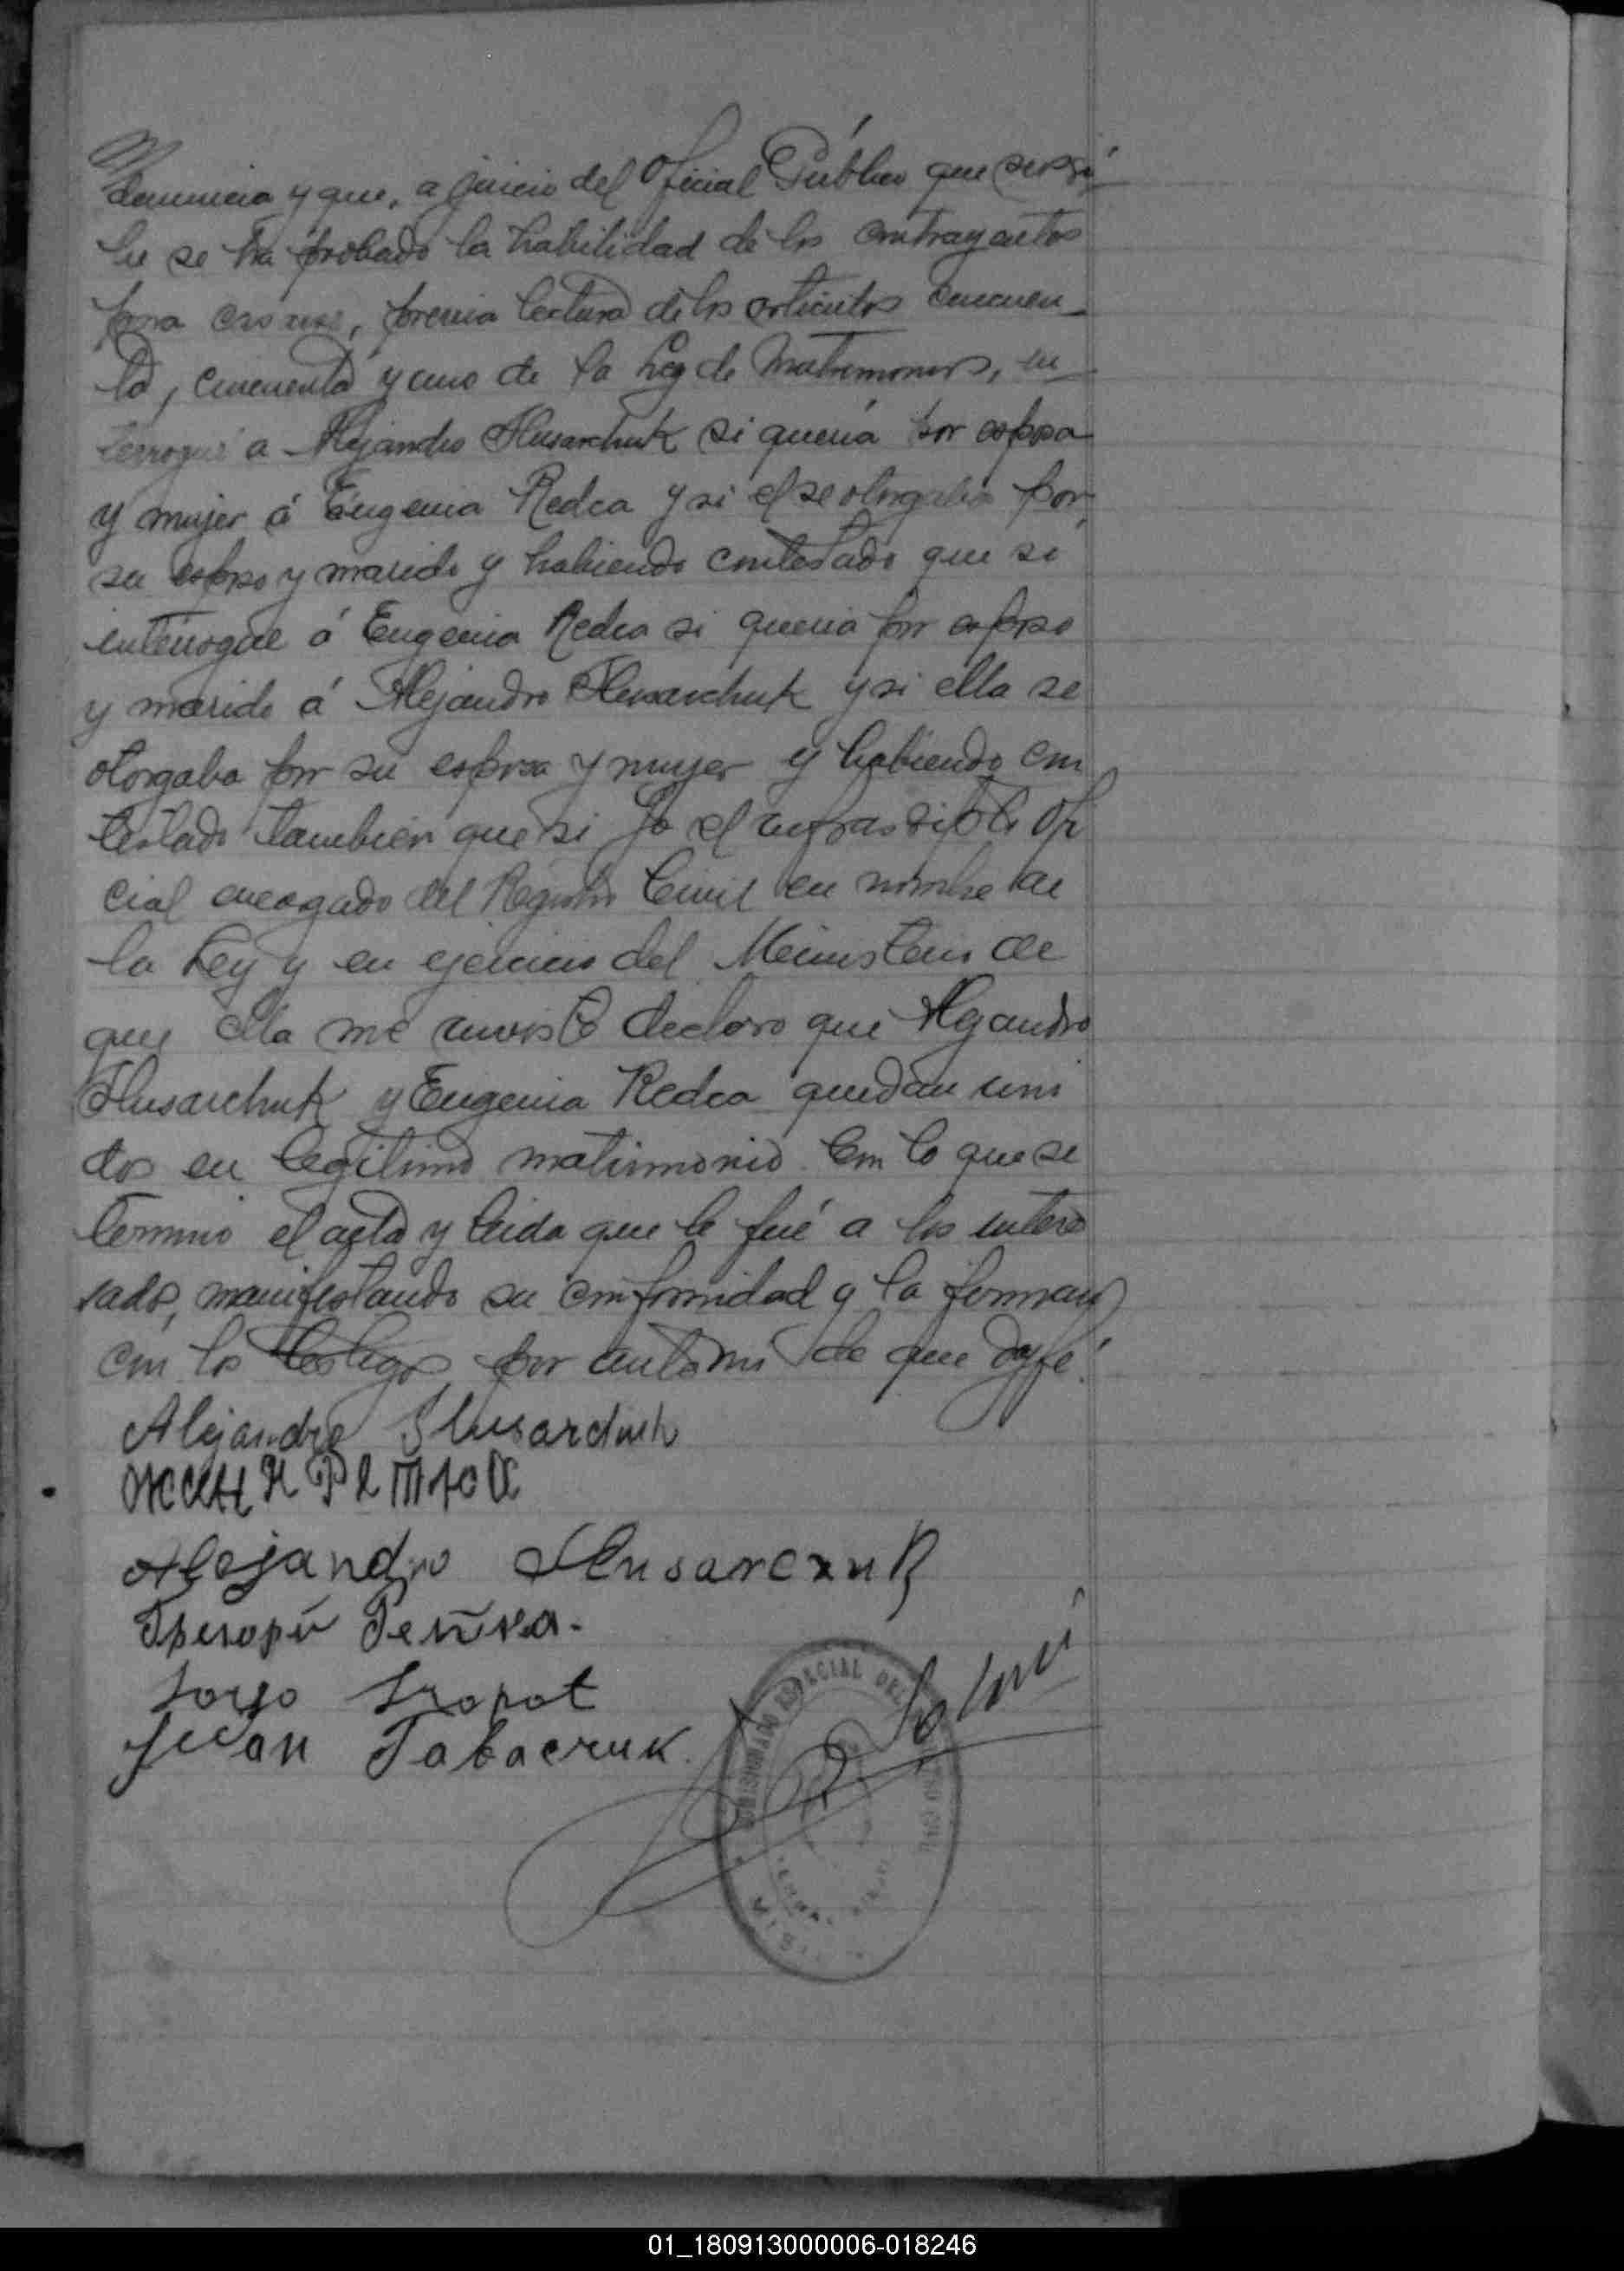 denuncia y que, a juicio del Oficial Público que suscri
be se ha probado la habilidad de los contrayentes
para casarse, previa lectura de los articulos cincuen-
ta, cincuenta y uno de la Ley de Matrimonios, in
terrogué a Alejandro Slusarchuk si queria por esposa
y mujer á Eugenia Redca y si el se otorgaba por
su esposo y marido y habiendo contestado que si
interrogue á Eugenia Redca si queria por esposo
y marido á Alejandro Slusarchuk y si ella se
otorgaba por su esposa y mujer y habiendo con
testado tambien que si Yo el infrascripto Ofi
cial encargado del Registro Civil en nombre de
la Ley y en ejercicio del Ministerio de
que ella me inviste declaro que Alejandro
Slusarchuk y Eugenia Redca quedan uni
dos en legitimo matrimonio. Con lo que se
termino el acta y leida que le fué a los intere
sados, manifestando su conformidad y la firman
con los testigos por ante mi de que doy fé.
Alejandro Slusarchuk
Alejandro Slusarcxuk
Jorjo
Juan Tabacruk.
COMISIONADO ESPECIAL DEL REGISTRO CIVIL
01_180913000006-018246